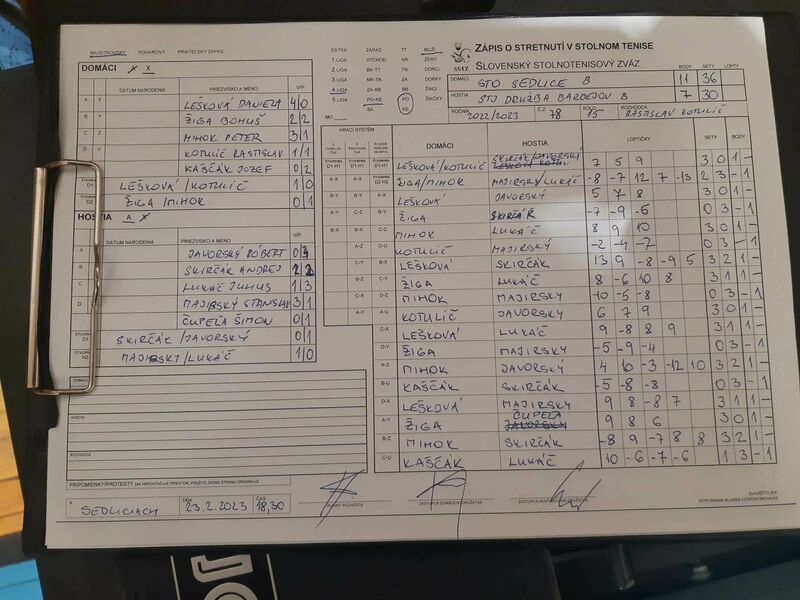 MAJSTROVSKÝ POHÁROVÝ PRIATEĽSKÝ ZÁPAS
DOMÁCI A X
DÁTUM NARODENIA PRIEZVISKO A MENO V/P
A X LEŠKOVÁ DANIELA 4/0
B Y ŽIGA BOHUŠ 2/2
C Z MIHOK PETER 3/1
D U KOTULIČ RASTISLAV 1/1
KAŠČÁK JOZEF 0/2
ŠTVORHRA D1 LEŠKOVÁ/KOTULIČ 1/0
ŠTVORHRA D2 ŽIGA/MIHOK 0/1
HOSTIA A X
DÁTUM NARODENIA PRIEZVISKO A MENO V/P
A JAVORSKÝ RÓBERT 0/3
B SKIRČÁK ANDREJ 2/2
C LUKÁČ JULIUS 1/3
D MAJIRSKÝ STANISLAV 3/1
ČUPEĽA ŠIMON 0/1
SKIRČÁK/JAVORSKÝ 0/1
H2 MAJIRSKY/LUKÁČ 1/0
DOMÁCI
HOSTIA
ROZHODCA
PRIPOMIENKY/PROTESTY (AK NEPOSTAČUJE PRIESTOR, POUŽITE ZADNÚ STRANU ORIGINÁLU)
V SEDLICIACH DŇA 23.2.2023 ČAS 18,30
EXTRA ZÁPAD TT MUŽI
1.LIGA VÝCHOD NR ŽENY
2.LIGA BA-TT ZN DORCI
3.LIGA NR-TN ZA DORKY
4.LIGA ZA-BB BB ŽIACI
5.LIGA PO-KE PO ŽIAČKY
BA KE
MO
ZÁPIS O STRETNUTÍ V STOLNOM TENISE
SSTZ SLOVENSKÝ STOLNOTENISOVÝ ZVÄZ
BODY SETY LOPTY
DOMÁCI STO SEDLICE B 11 36
HOSTIA STJ DRUŽBA BARDEJOV B 7 30
ROČNÍK 2022/2023 Č.Z. 78 KOLO 15 ROZHODCA RASTISLAV KOTULIČ
HRACÍ SYSTÉM
DOMÁCI HOSTIA LOPTIČKY SETY BODY
LEŠKOVÁ/KOTULIČ SKIRČÁK/JAVORSKÝ 7 5 9 3 0 1 -
ŽIGA/MIHOK MAJIRSKY/LUKÁČ -8 -7 12 7 -13 2 3 - 1
LEŠKOVÁ JAVORSKÝ 5 7 8 3 0 1 -
ŽIGA SKIRČÁK -7 -9 -5 0 3 - 1
MIHOK LUKÁČ 8 9 10 3 0 1 -
KOTULIČ MAJIRSKÝ -2 -4 -7 0 3 - 1
LEŠKOVÁ SKIRČÁK 13 9 -8 -9 5 3 2 1 -
ŽIGA LUKÁČ 8 -6 10 8 3 1 1 -
MIHOK MAJIRSKÝ -10 -5 -8 0 3 - 1
KOTULIČ JAVORSKÝ 6 7 9 3 0 1 -
LEŠKOVÁ LUKÁČ 9 -8 8 9 3 1 1 -
ŽIGA MAJIRSKÝ -5 -9 -4 0 3 - 1
MIHOK JAVORSKÝ 4 10 -3 -12 10 3 2 1 -
KAŠČÁK SKIRČÁK -5 -8 -8 0 3 - 1
LEŠKOVÁ MAJIRSKÝ 9 8 -8 7 3 1 1 -
ŽIGA ČUPEĽA 9 8 6 3 0 1 -
MIHOK SKIRČÁK -8 9 -7 8 8 3 2 1 -
KAŠČÁK LUKÁČ 10 -6 -7 -6 1 3 - 1
ZÁSTUPCA DOMÁCEHO DRUŽSTVA